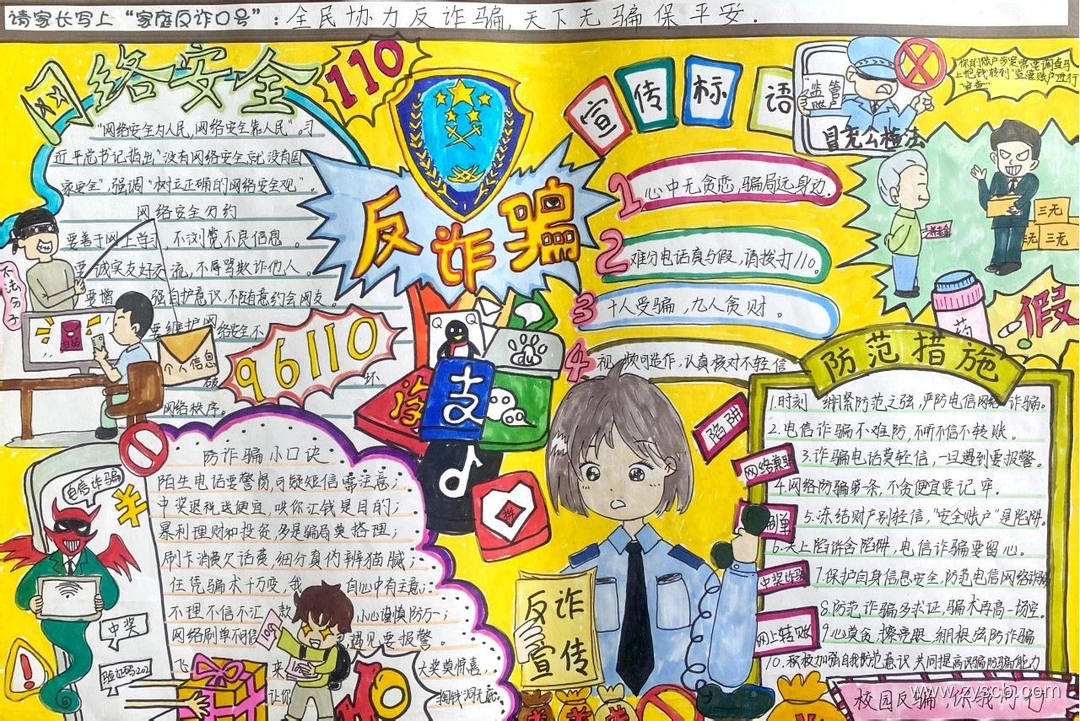 请家长写上“家庭反诈口号”：全民协力反诈骗,天下无骗保平安.
网络安全
110
“网络安全为人民,网络安全靠人民”。习
近平总书记指出“没有网络安全就没有国
家安全”,强调“树立正确的网络安全观”。
网络安全公约
要善于网上学习,不浏览不良信息。
要诚实友好交流,不辱骂欺诈他人。
要增强自护意识,不随意约会网友。
要维护网络安全不
破坏
网络秩序。
不法分子
个人信息
96110
反诈骗
宣传标语
1 心中无贪恋,骗局远身边.
2 难分电话真与假,请拨打110。
3 十人受骗,九人贪财。
4 视频可造作,认真核对不轻信
“监管账户”
冒充公检法
养老金
三元
三元
三元
药
假
Q
支
防诈骗小口诀
陌生电话要警惕,可疑短信需注意；
中奖退税送便宜,哄你让钱是目的；
暴利理财和投资,多是骗局莫搭理,
刷卡消费欠话费 细分真伪辨猫腻；
任凭骗术千万变,我自心中有主意；
不理不信不汇款 小心谨慎防万一；
网络刷单不可信 遇见要报警。
飞来大奖莫惊喜,
让你掏钱洞无底。
电信诈骗
¥
中奖
验证码
110
反诈
宣传
陷阱
刷单
中奖诈骗
网上转账
防范措施
1.时刻绷紧防范之弦,严防电信网络诈骗。
2.电信诈骗不难防,不听不信不转账。
3.诈骗电话莫轻信,一旦遇到要报警。
4.网络防骗第一条,不贪便宜要记牢。
5.冻结财产别轻信,“安全账户”是陷阱。
6.天上陷饼含陷阱,电信诈骗要留心。
7.保护自身信息安全,防范电信网络诈骗
8.防范诈骗多求证,骗术再高一场空。
9.心莫贪,擦亮眼,绷根弦防诈骗
10.积极加强自我防范意识 共同提高识骗防骗能力
校园反骗,你我同行
www.zyscb.com